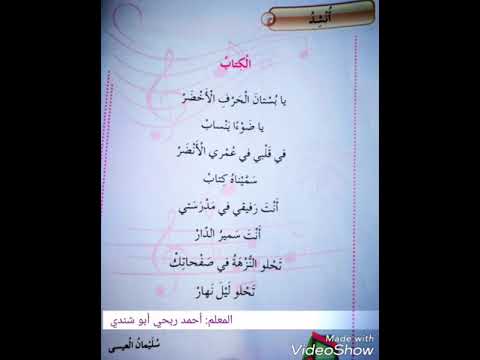 أُنْشِدُ
الْكِتابُ
يا بُسْتانَ الْحَرْفِ الْأَخْضَرْ
يا ضَوْءًا يَنْسابْ
في قَلْبي في عُمْري الْأَنْضَرْ
سَمَّيْناهُ كِتابْ
أَنْتَ رَفيقي في مَدْرَسَتي
أَنْتَ سَميرُ الدّارْ
تَحْلو النُّزْهَةُ في صَفْحاتِكْ
تَحْلو لَيْلَ نَهارْ
المعلم: أحمد ربحي أبو شندي
سُلَيْمانُ الْعيسى
Made with
VideoShow